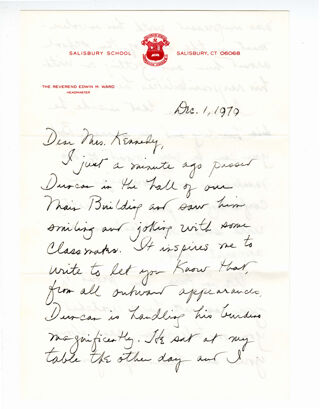 SALISBURY SCHOOL SALISBURY, CT 06068
THE REVEREND EDWIN M. WARD
HEADMASTER
Dec. 1, 1979
Dear Mrs. Kennedy,
I just a minute ago passed
Duncan in the hall of our
Main Building and saw him
smiling and joking with some
classmates. It inspires me to
write to let you know that,
from all outward appearances,
Duncan is handling his burdens
magnificently. He sat at my
table the other day and I